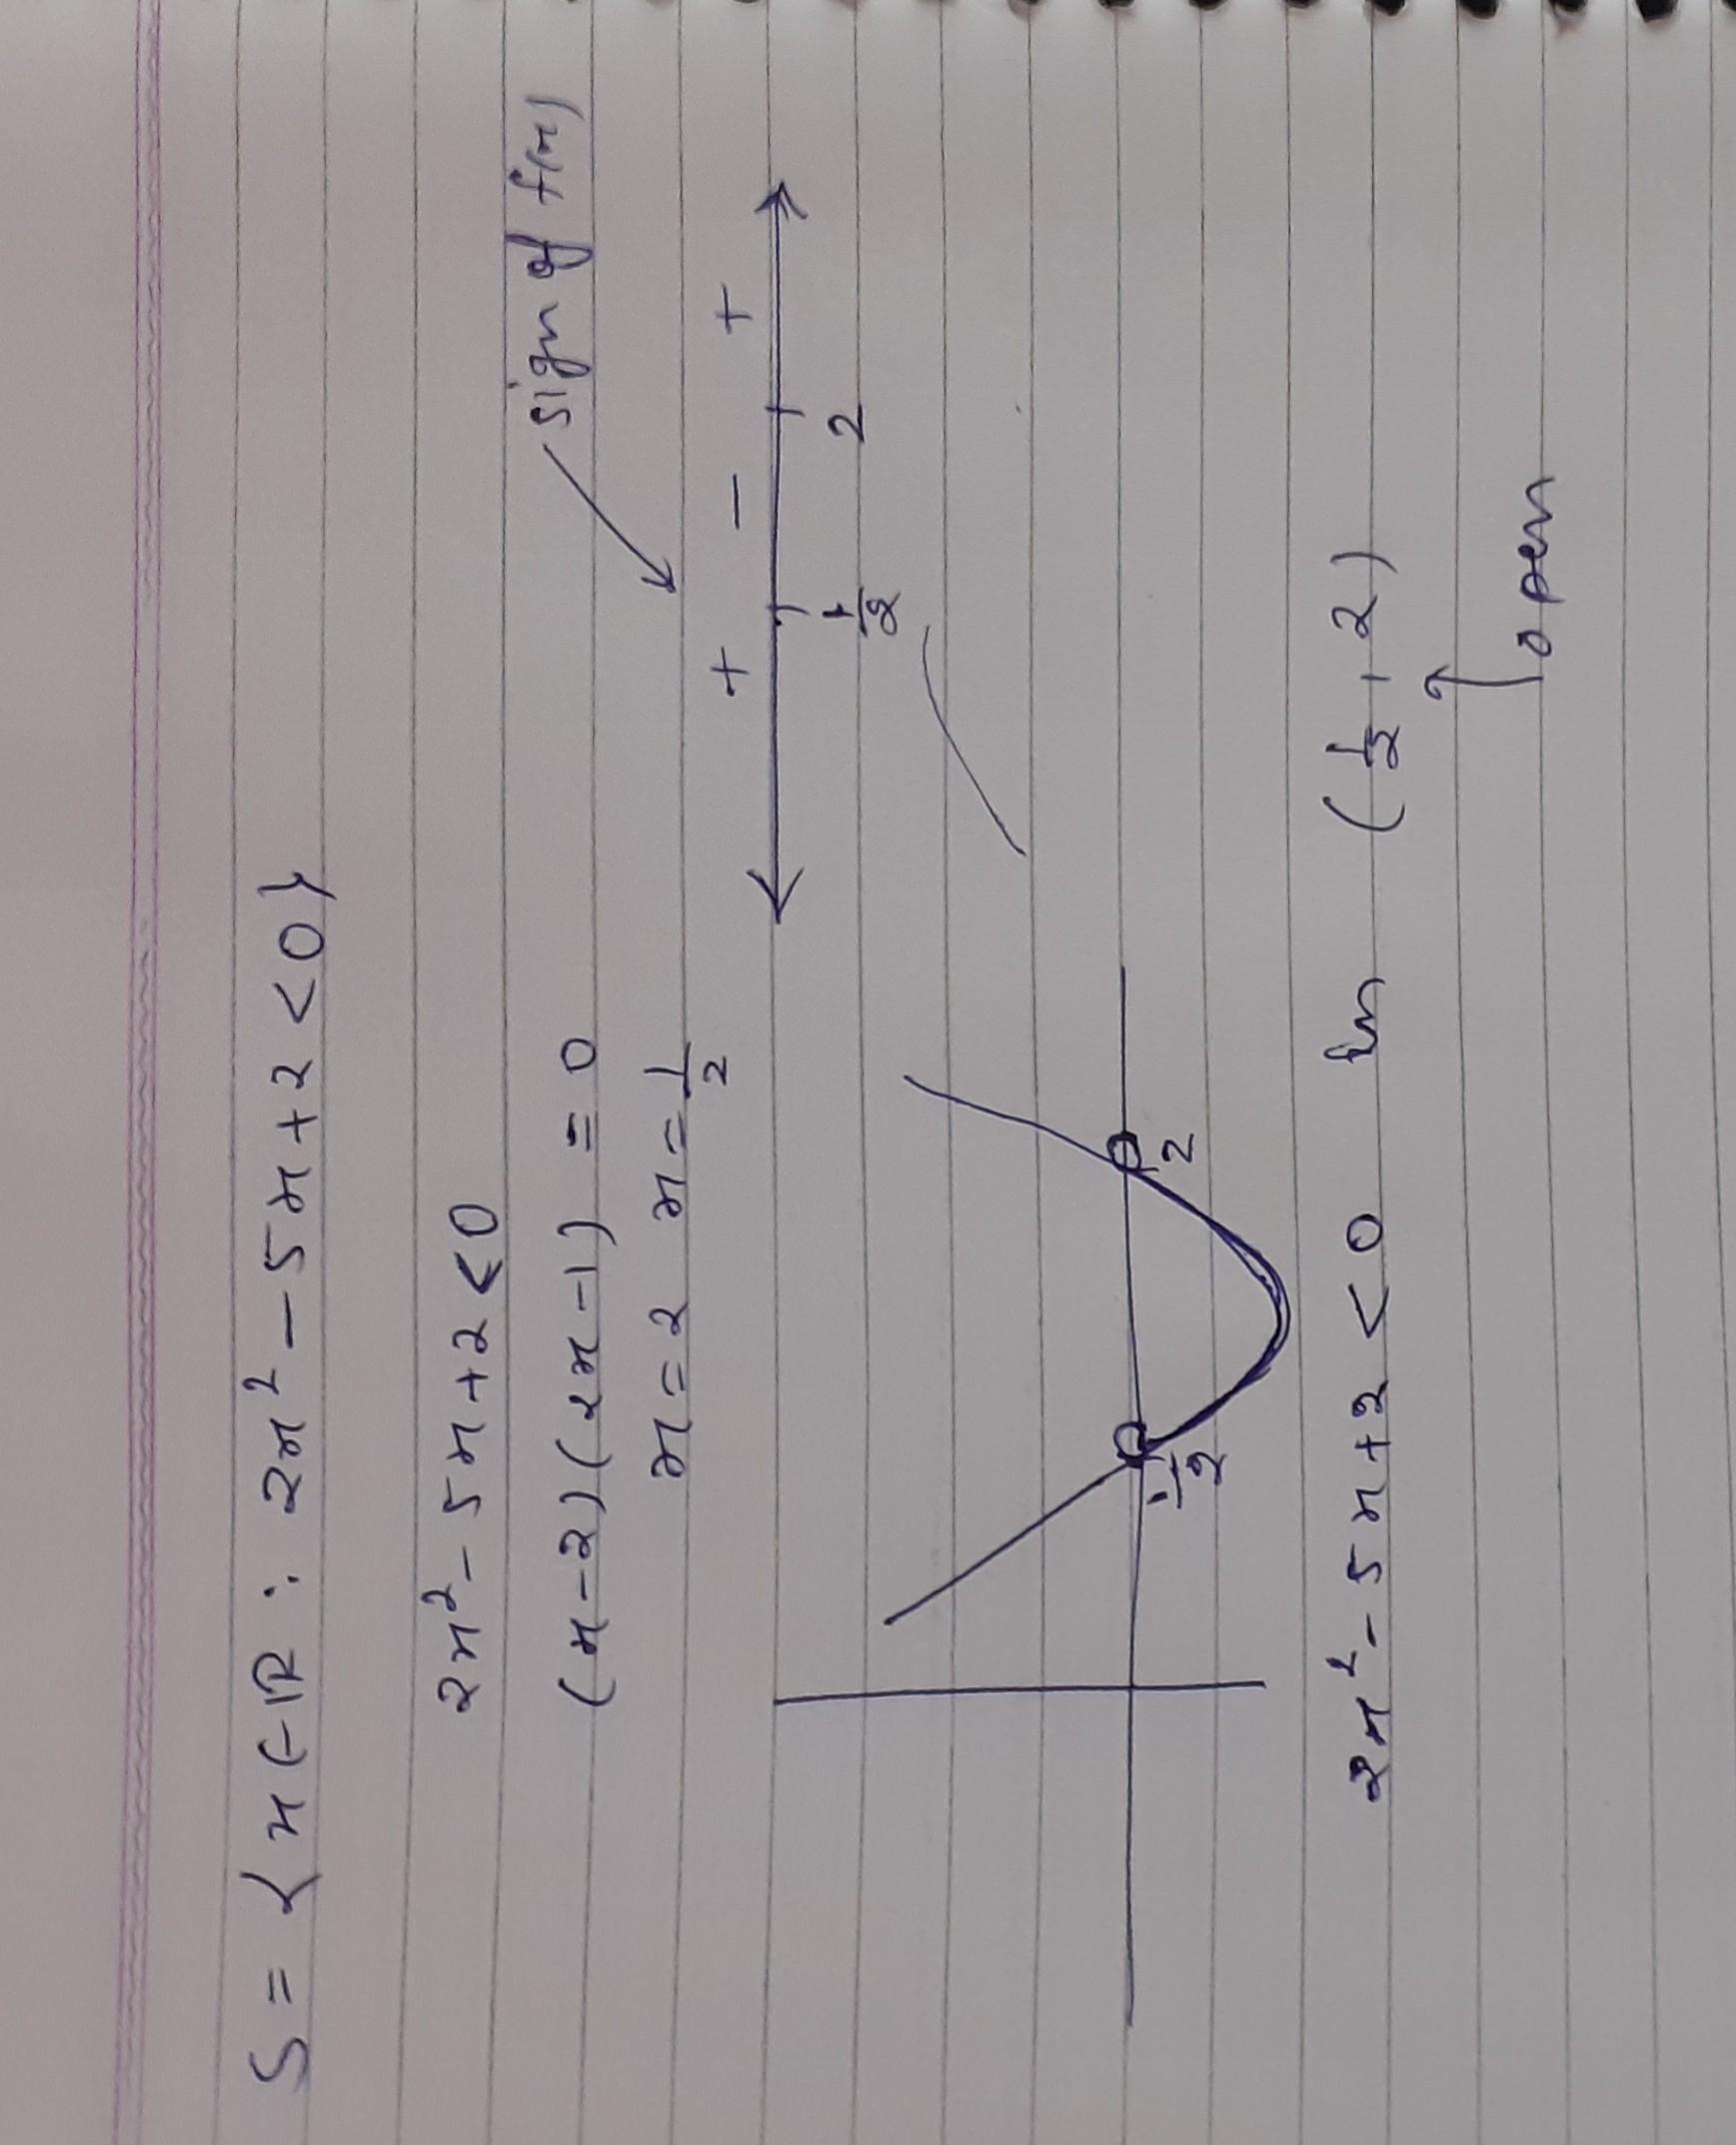 S = { x ∈ ℝ : 2x² - 5x + 2 < 0 }
2x² - 5x + 2 < 0
(x - 2)(2x - 1) = 0
x = 2 x = 1/2
sign of f(x)
+ - +
1/2 2
1/2 2
2x² - 5x + 2 < 0 in (1/2, 2)
open